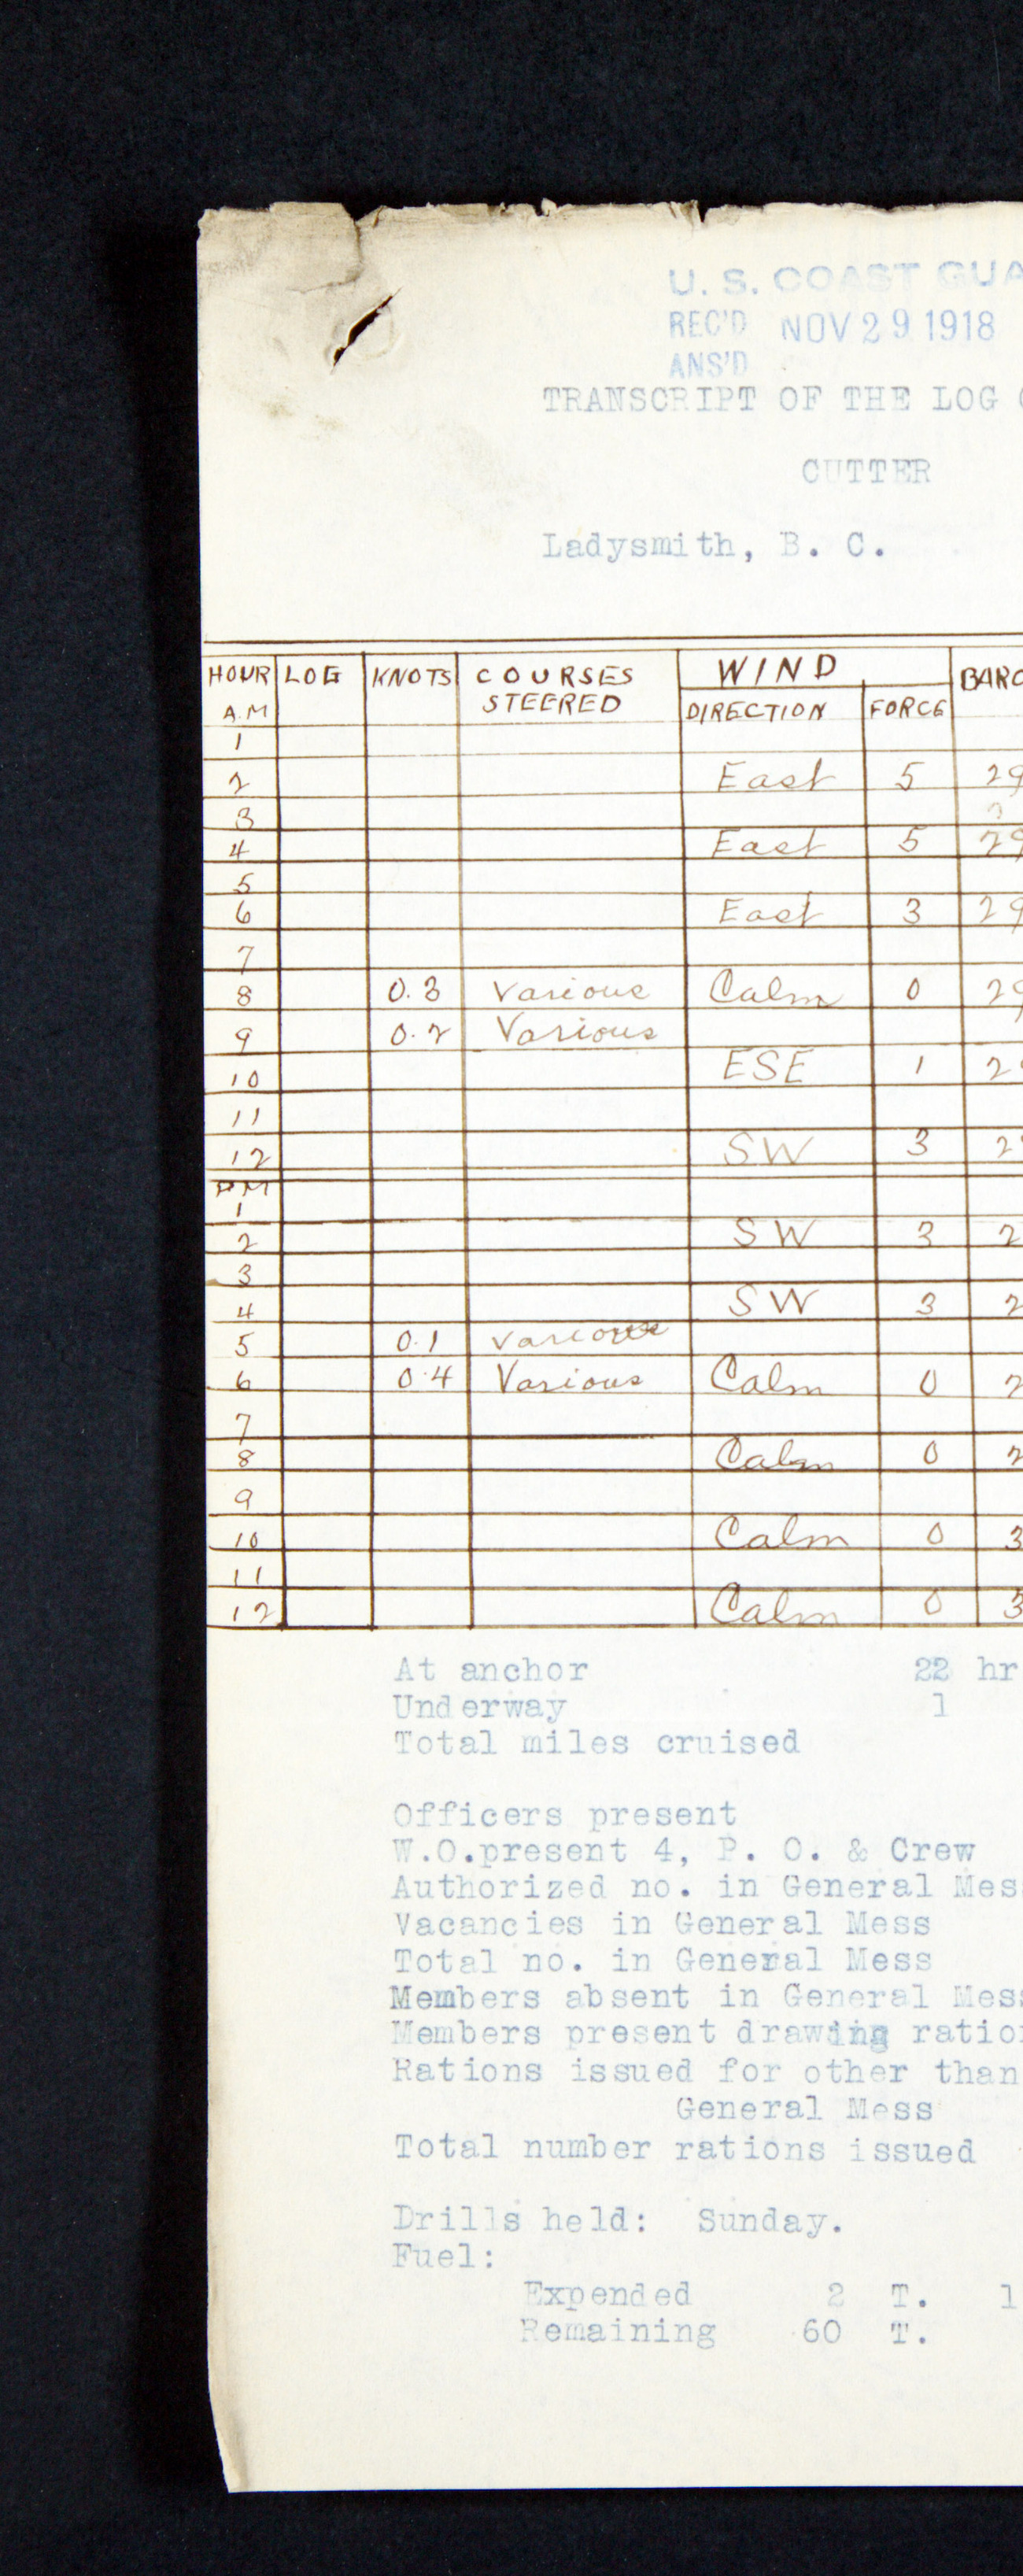 U. S. COAST GUA
REC'D NOV 29 1918
ANS'D
TRANSCRIPT OF THE LOG
CUTTER
Ladysmith, B. C.
HOUR LOG KNOTS COURSES STEERED WIND BARO
A.M DIRECTION FORCE
1
2 East 5 29
3
4 East 5 29
5
6 East 3 29
7
8 0.3 Various Calm 0 29
9 0.2 Various
10 ESE 1 2
11
12 SW 3 2
P M
1
2 SW 3 2
3
4 SW 3 2
5 0.1 various
6 0.4 Various Calm 0 2
7
8 Calm 0 2
9
10 Calm 0 3
11
12 Calm 0 3
At anchor 22 hr
Underway 1
Total miles cruised
Officers present
W.O.present 4, P. O. & Crew
Authorized no. in General Mes
Vacancies in General Mess
Total no. in General Mess
Members absent in General Mess
Members present drawing ratio
Rations issued for other than
General Mess
Total number rations issued
Drills held: Sunday.
Fuel:
Expended 2 T. 1
Remaining 60 T.